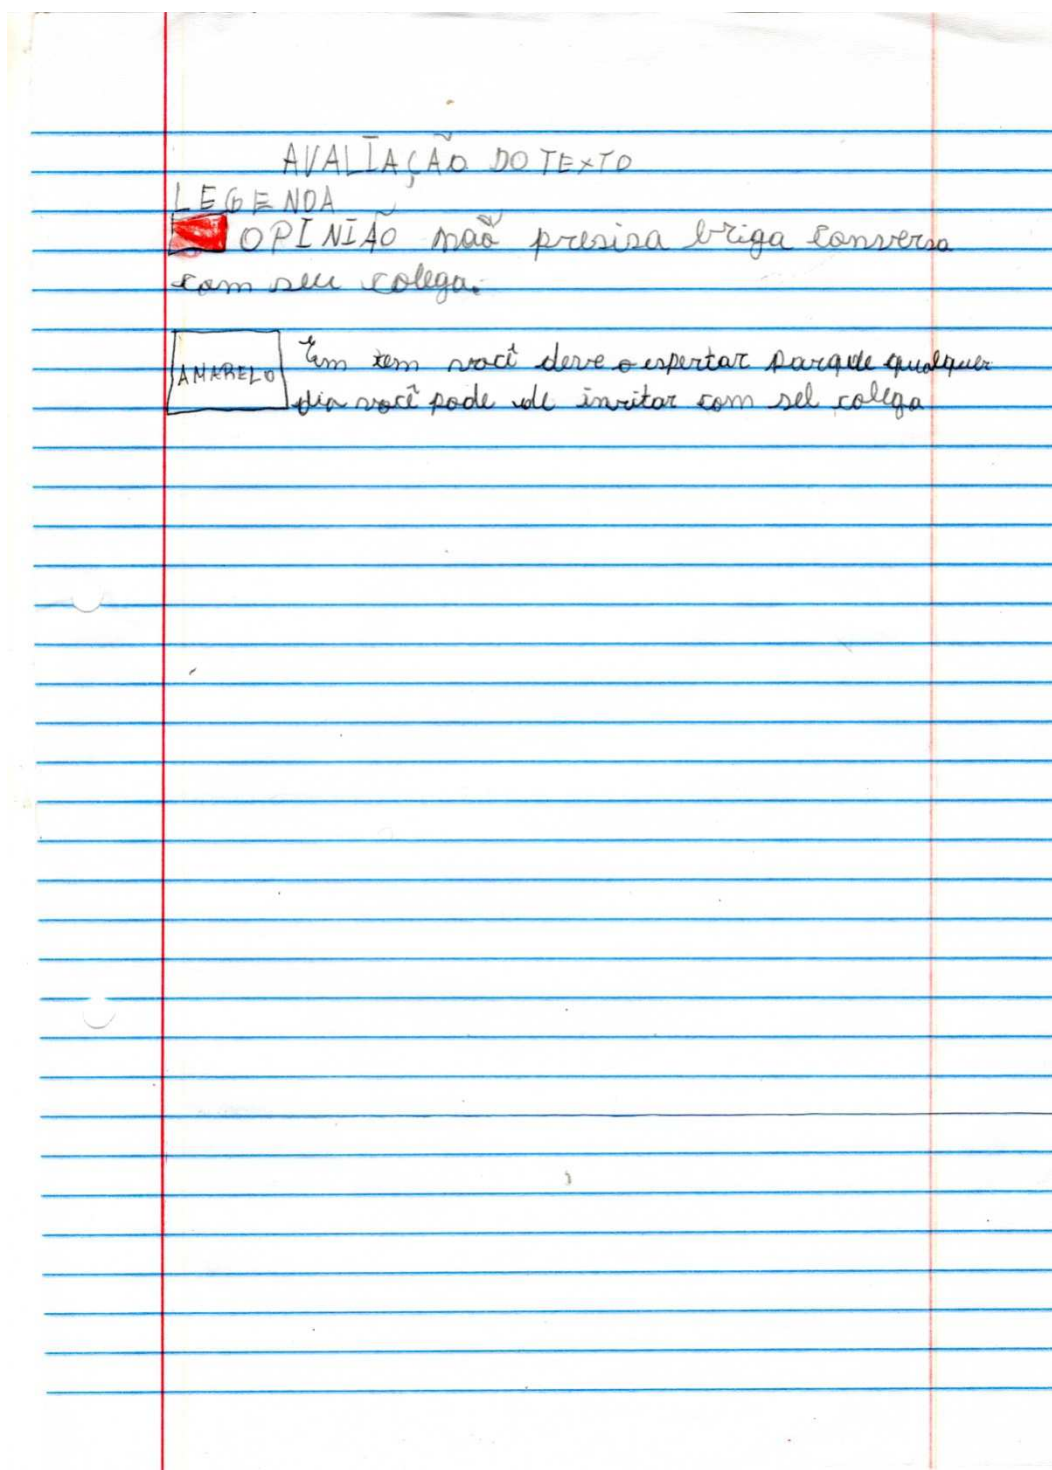 AVALIAÇÃO DO TEXTO
LEGENDA
OPINIÃO não presisa briga conversa
com seu colega.
AMARELO Em tem você deve o espertar porque qualquer
dia você pode de invitar com sel colega